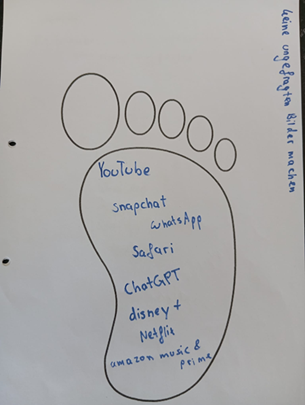 Keine ungefragten Bilder machen
YouTube
snapchat
WhatsApp
Safari
ChatGPT
disney +
Netflix
amazon music &
prime